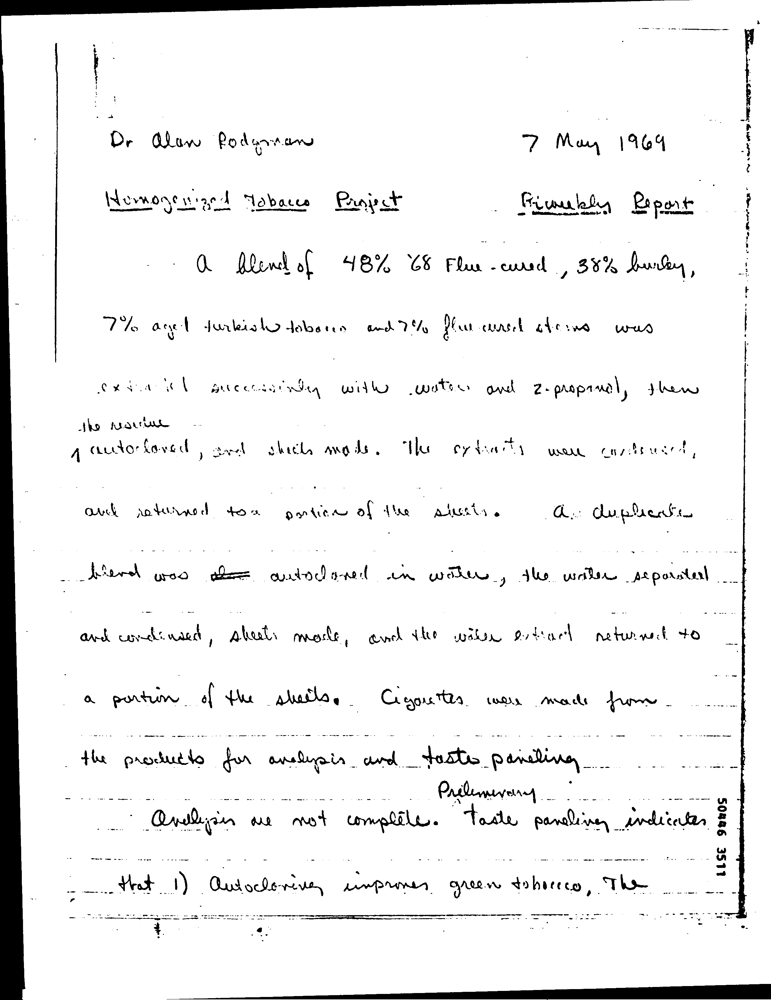 Dr Alan Rodgman 7 May 1969
Homogenized Tobacco Project Biweekly Report
A blend of 48% '68 Flue-cured, 38% burley,
7% aged turkish tobacco and 7% flue cured stems was
extracted successively with water and 2-propanol, then
the residue
autoclaved, and sheets made. The extracts were condensed,
and returned to a portion of the sheets. A duplicate
blend was autoclaved in water, the water separated
and condensed, sheets made, and the water extract returned to
a portion of the sheets. Cigarettes were made from
the products for analysis and taste paneling
Preliminary
Analysis are not complete. Taste paneling indicates
that 1) Autoclaving improves green tobacco, The
50446 3511